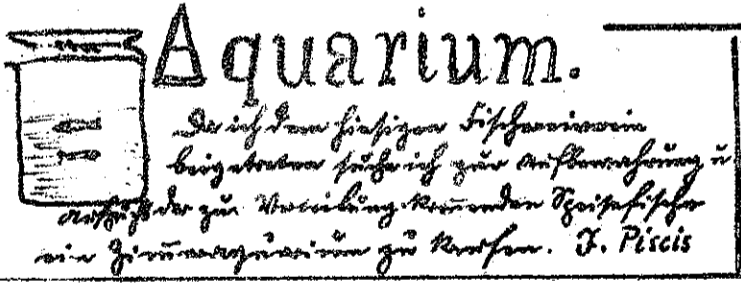 Aquarium.
Da ich dem hiesigen Fischverein
beigetreten suche ich zur Aufbewahrung u
der zur Verteilung kom̅enden Speisefische
ein Zim̅eraquarium zu kaufen. J. Piscis